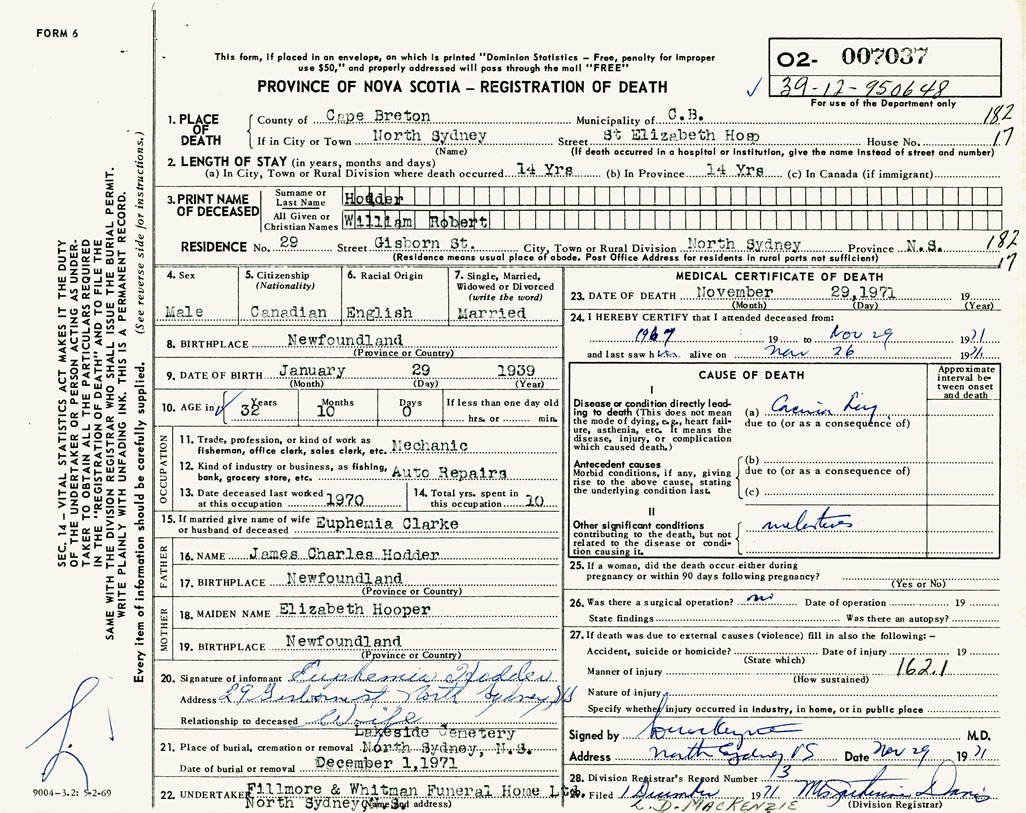 FORM 6
This form, if placed in an envelope, on which is printed "Dominion Statistics – Free, penalty for improper
use $50," and properly addressed will pass through the mail "FREE"
PROVINCE OF NOVA SCOTIA – REGISTRATION OF DEATH
02- 007037
39-12-950648
For use of the Department only
1. PLACE OF DEATH
County of Cape Breton Municipality of C.B. 182
If in City or Town North Sydney Street St Elizabeth Hosp House No. 17
(Name) (If death occurred in a hospital or institution, give the name instead of street and number)
2. LENGTH OF STAY (in years, months and days)
(a) In City, Town or Rural Division where death occurred 14 Yrs (b) In Province 14 Yrs (c) In Canada (if immigrant)
3. PRINT NAME OF DECEASED
Surname or Last Name Hodder
All Given or Christian Names William Robert
RESIDENCE No. 29 Street Gisborn St. City, Town or Rural Division North Sydney Province N.S. 182
(Residence means usual place of abode. Post Office Address for residents in rural parts not sufficient) 17
4. Sex
Male
5. Citizenship
(Nationality)
Canadian
6. Racial Origin
English
7. Single, Married,
Widowed or Divorced
(write the word)
Married
8. BIRTHPLACE Newfoundland
(Province or Country)
9. DATE OF BIRTH January 29 1939
(Month) (Day) (Year)
10. AGE in Years Months Days If less than one day old
32 10 0 hrs. or min.
OCCUPATION
11. Trade, profession, or kind of work as
fisherman, office clerk, sales clerk, etc. Mechanic
12. Kind of industry or business, as fishing,
bank, grocery store, etc. Auto Repairs
13. Date deceased last worked
at this occupation 1970
14. Total yrs. spent in
this occupation 10
15. If married give name of wife
or husband of deceased Euphemia Clarke
FATHER
16. NAME James Charles Hodder
17. BIRTHPLACE Newfoundland
(Province or Country)
MOTHER
18. MAIDEN NAME Elizabeth Hooper
19. BIRTHPLACE Newfoundland
(Province or Country)
20. Signature of informant Euphemia Hodder
Address 29 Gisborn st North Sydney, NS
Relationship to deceased Wife
Lakeside Cemetery
21. Place of burial, cremation or removal North Sydney, N.S.
Date of burial or removal December 1,1971
22. UNDERTAKER Fillmore & Whitman Funeral Home Ltd.
North Sydney, N.S.
(Name and address)
MEDICAL CERTIFICATE OF DEATH
23. DATE OF DEATH November 29,1971 19
(Month) (Day) (Year)
24. I HEREBY CERTIFY that I attended deceased from:
1967 19 to Nov 29 1971
and last saw him alive on Nov 26 1971
CAUSE OF DEATH
Approximate
interval be-
tween onset
and death
I
Disease or condition directly lead-
ing to death (This does not mean
the mode of dying, e.g., heart fail-
ure, asthenia, etc. It means the
disease, injury, or complication
which caused death.)
(a)
due to (or as a consequence of)
Antecedent causes
Morbid conditions, if any, giving
rise to the above cause, stating
the underlying condition last.
(b)
due to (or as a consequence of)
(c)
II
Other significant conditions
contributing to the death, but not
related to the disease or condi-
tion causing it.
25. If a woman, did the death occur either during
pregnancy or within 90 days following pregnancy?
(Yes or No)
26. Was there a surgical operation? no Date of operation 19
State findings Was there an autopsy?
27. If death was due to external causes (violence) fill in also the following: –
Accident, suicide or homicide? Date of injury 19
(State which)
Manner of injury 162.1
(How sustained)
Nature of injury
Specify whether injury occurred in industry, in home, or in public place
Signed by M.D.
Address North Sydney NS Date Nov 29 1971
28. Division Registrar's Record Number 13
29. Filed 1 December 1971 Davis
L.D. MACKENZIE (Division Registrar)
SEC. 14 – VITAL STATISTICS ACT MAKES IT THE DUTY
OF THE UNDERTAKER OR PERSON ACTING AS UNDER-
TAKER TO OBTAIN ALL THE PARTICULARS REQUIRED
IN THE "REGISTRATION OF DEATH" AND TO FILE THE
SAME WITH THE DIVISION REGISTRAR WHO SHALL ISSUE THE BURIAL PERMIT.
WRITE PLAINLY WITH UNFADING INK. THIS IS A PERMANENT RECORD.
Every item of information should be carefully supplied. (See reverse side for instructions.)
9004-3.2: 5-2-69